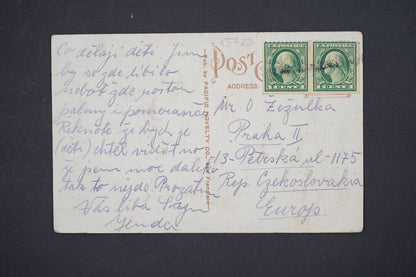 Co dělají děti. Jim
by se zde líbilo
neboť zde rostou
palmy i pomeranče
Řekněte že bych je
(děti) chtěl vidět no
je jsem moc daleko
tak to nejde Prozatim
Vás líbá
Jenda
X5723
POST C
ADDRESS
PUB. BY PACIFIC NOVELTY CO. San Francisco
U.S. POSTAGE
1 CENT 1
U.S. POSTAGE
1 CENT 1
Mr. O Žežulka
Praha II.
13- Petrská ul-1175
Rep. Czekoslovakia
Europ.